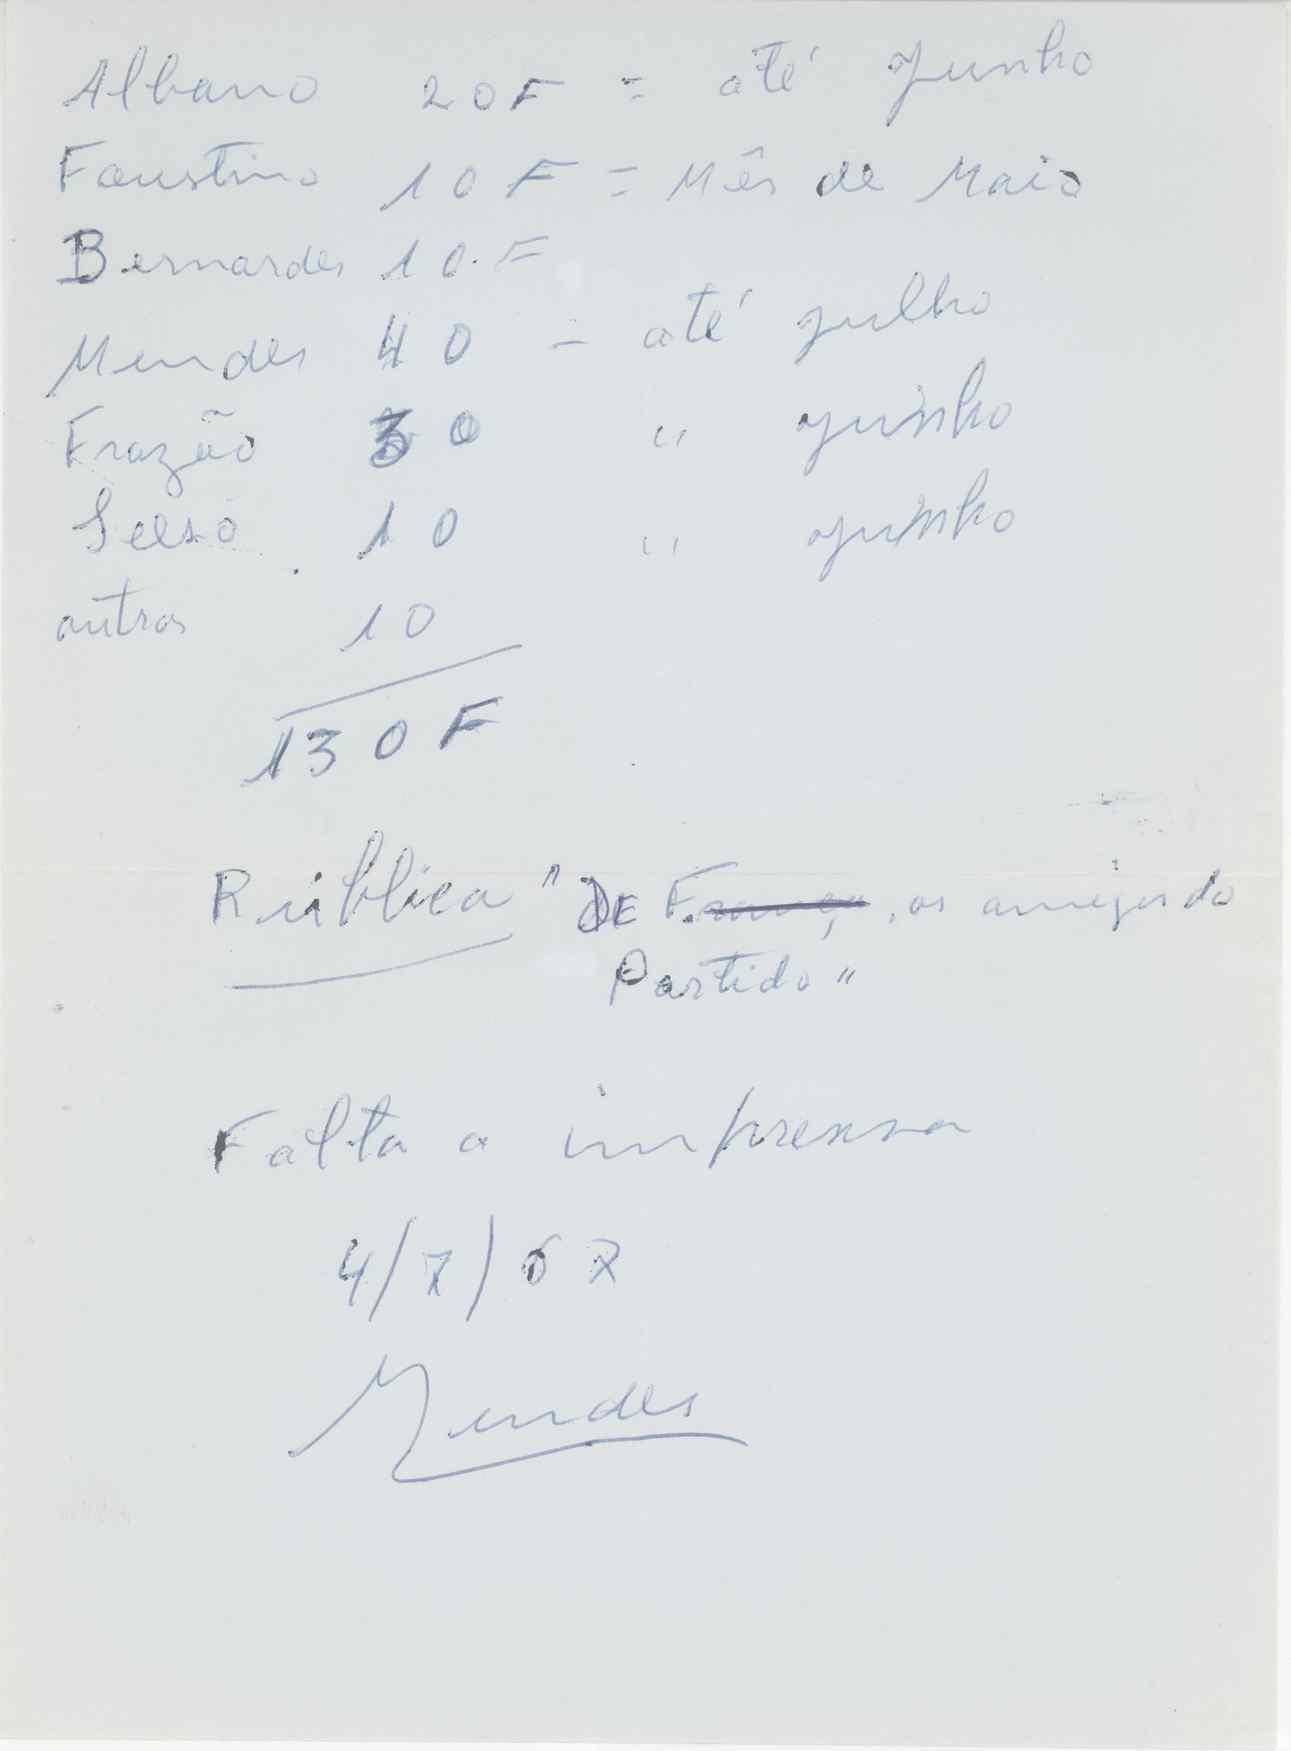 Albano 20F = até Junho
Faustino 10 F = Mês de Maio
Bernardes 10.F
Mendes 40 - até julho
Frazão 30 " junho
Selso 10 " junho
outros 10
130 F
Rública "DE França, os amigos do
Partido"
Falta a imprensa
4/7/67
Mendes